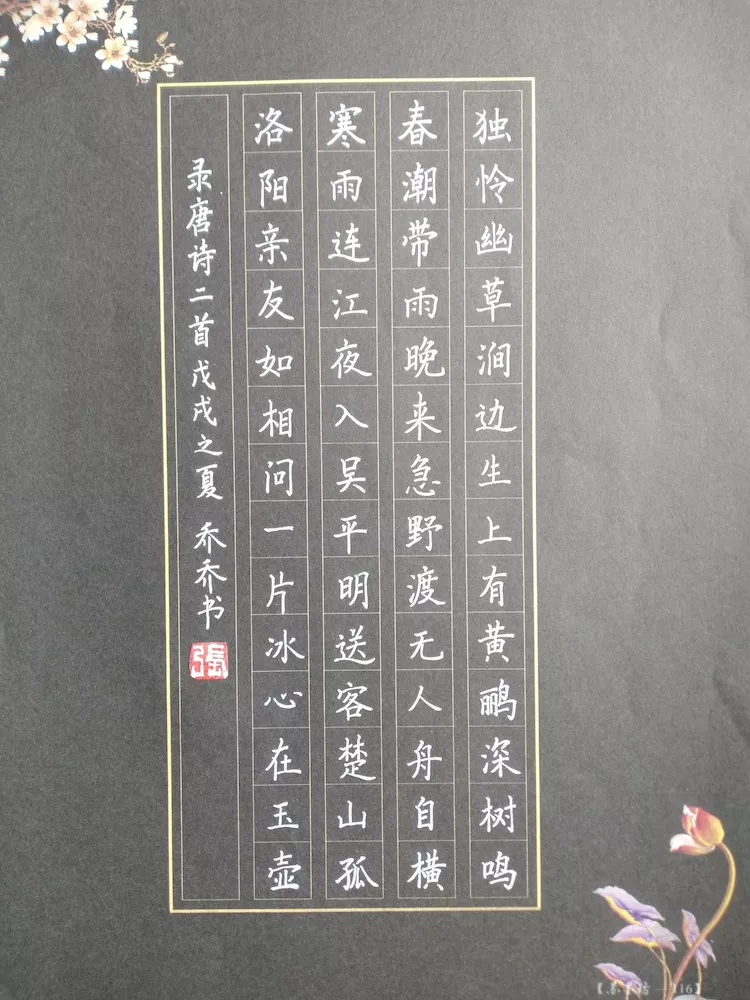 独怜幽草涧边生上有黄鹂深树鸣
春潮带雨晚来急野渡无人舟自横
寒雨连江夜入吴平明送客楚山孤
洛阳亲友如相问一片冰心在玉壶
录唐诗二首戊戌之夏 乔乔书
張